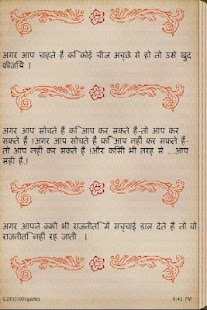 अगर आप चाहते हैं कि कोई चीज अच्छे से हो तो उसे खुद
कीजिये ।
अगर आप सोचते हैं कि आप कर सकते हैं-तो आप कर
सकते हैं ।अगर आप सोचते हैं कि आप नहीं कर सकते हैं-
तो आप नहीं कर सकते हैं ।और किसी भी तरह से ...आप
सही हैं ।
अगर आपने कभी भी राजनीति में सच्चाई डाल देते हैं तो वो
राजनीति नहीं रह जाती ।
PM